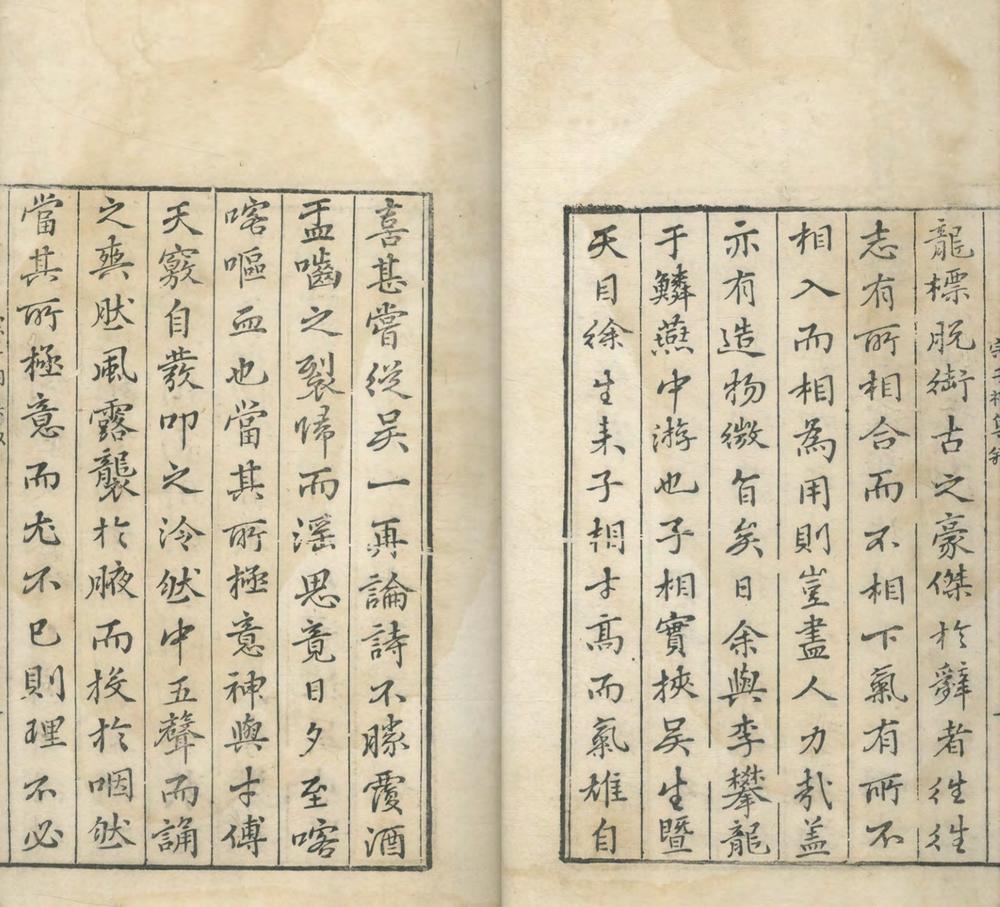 龍標脫銜古之豪傑於辭者徃徃
志有所相合而不相下氣有所不
相入而相為用則豈盡人力哉蓋
亦有造物微旨矣日余與李攀龍
于鱗燕中游也子相實挾吳生暨
天目徐生来子相才髙而氣雄自
喜甚嘗從吳一再論詩不勝覆酒
盂嚙之裂歸而滛思竟日夕至喀
喀嘔血也當其所極意神與才傅
天竅自發叩之泠然中五聲而誦
之爽然風露襲於腋而投於咽然
當其所極意而尤不已則理不必